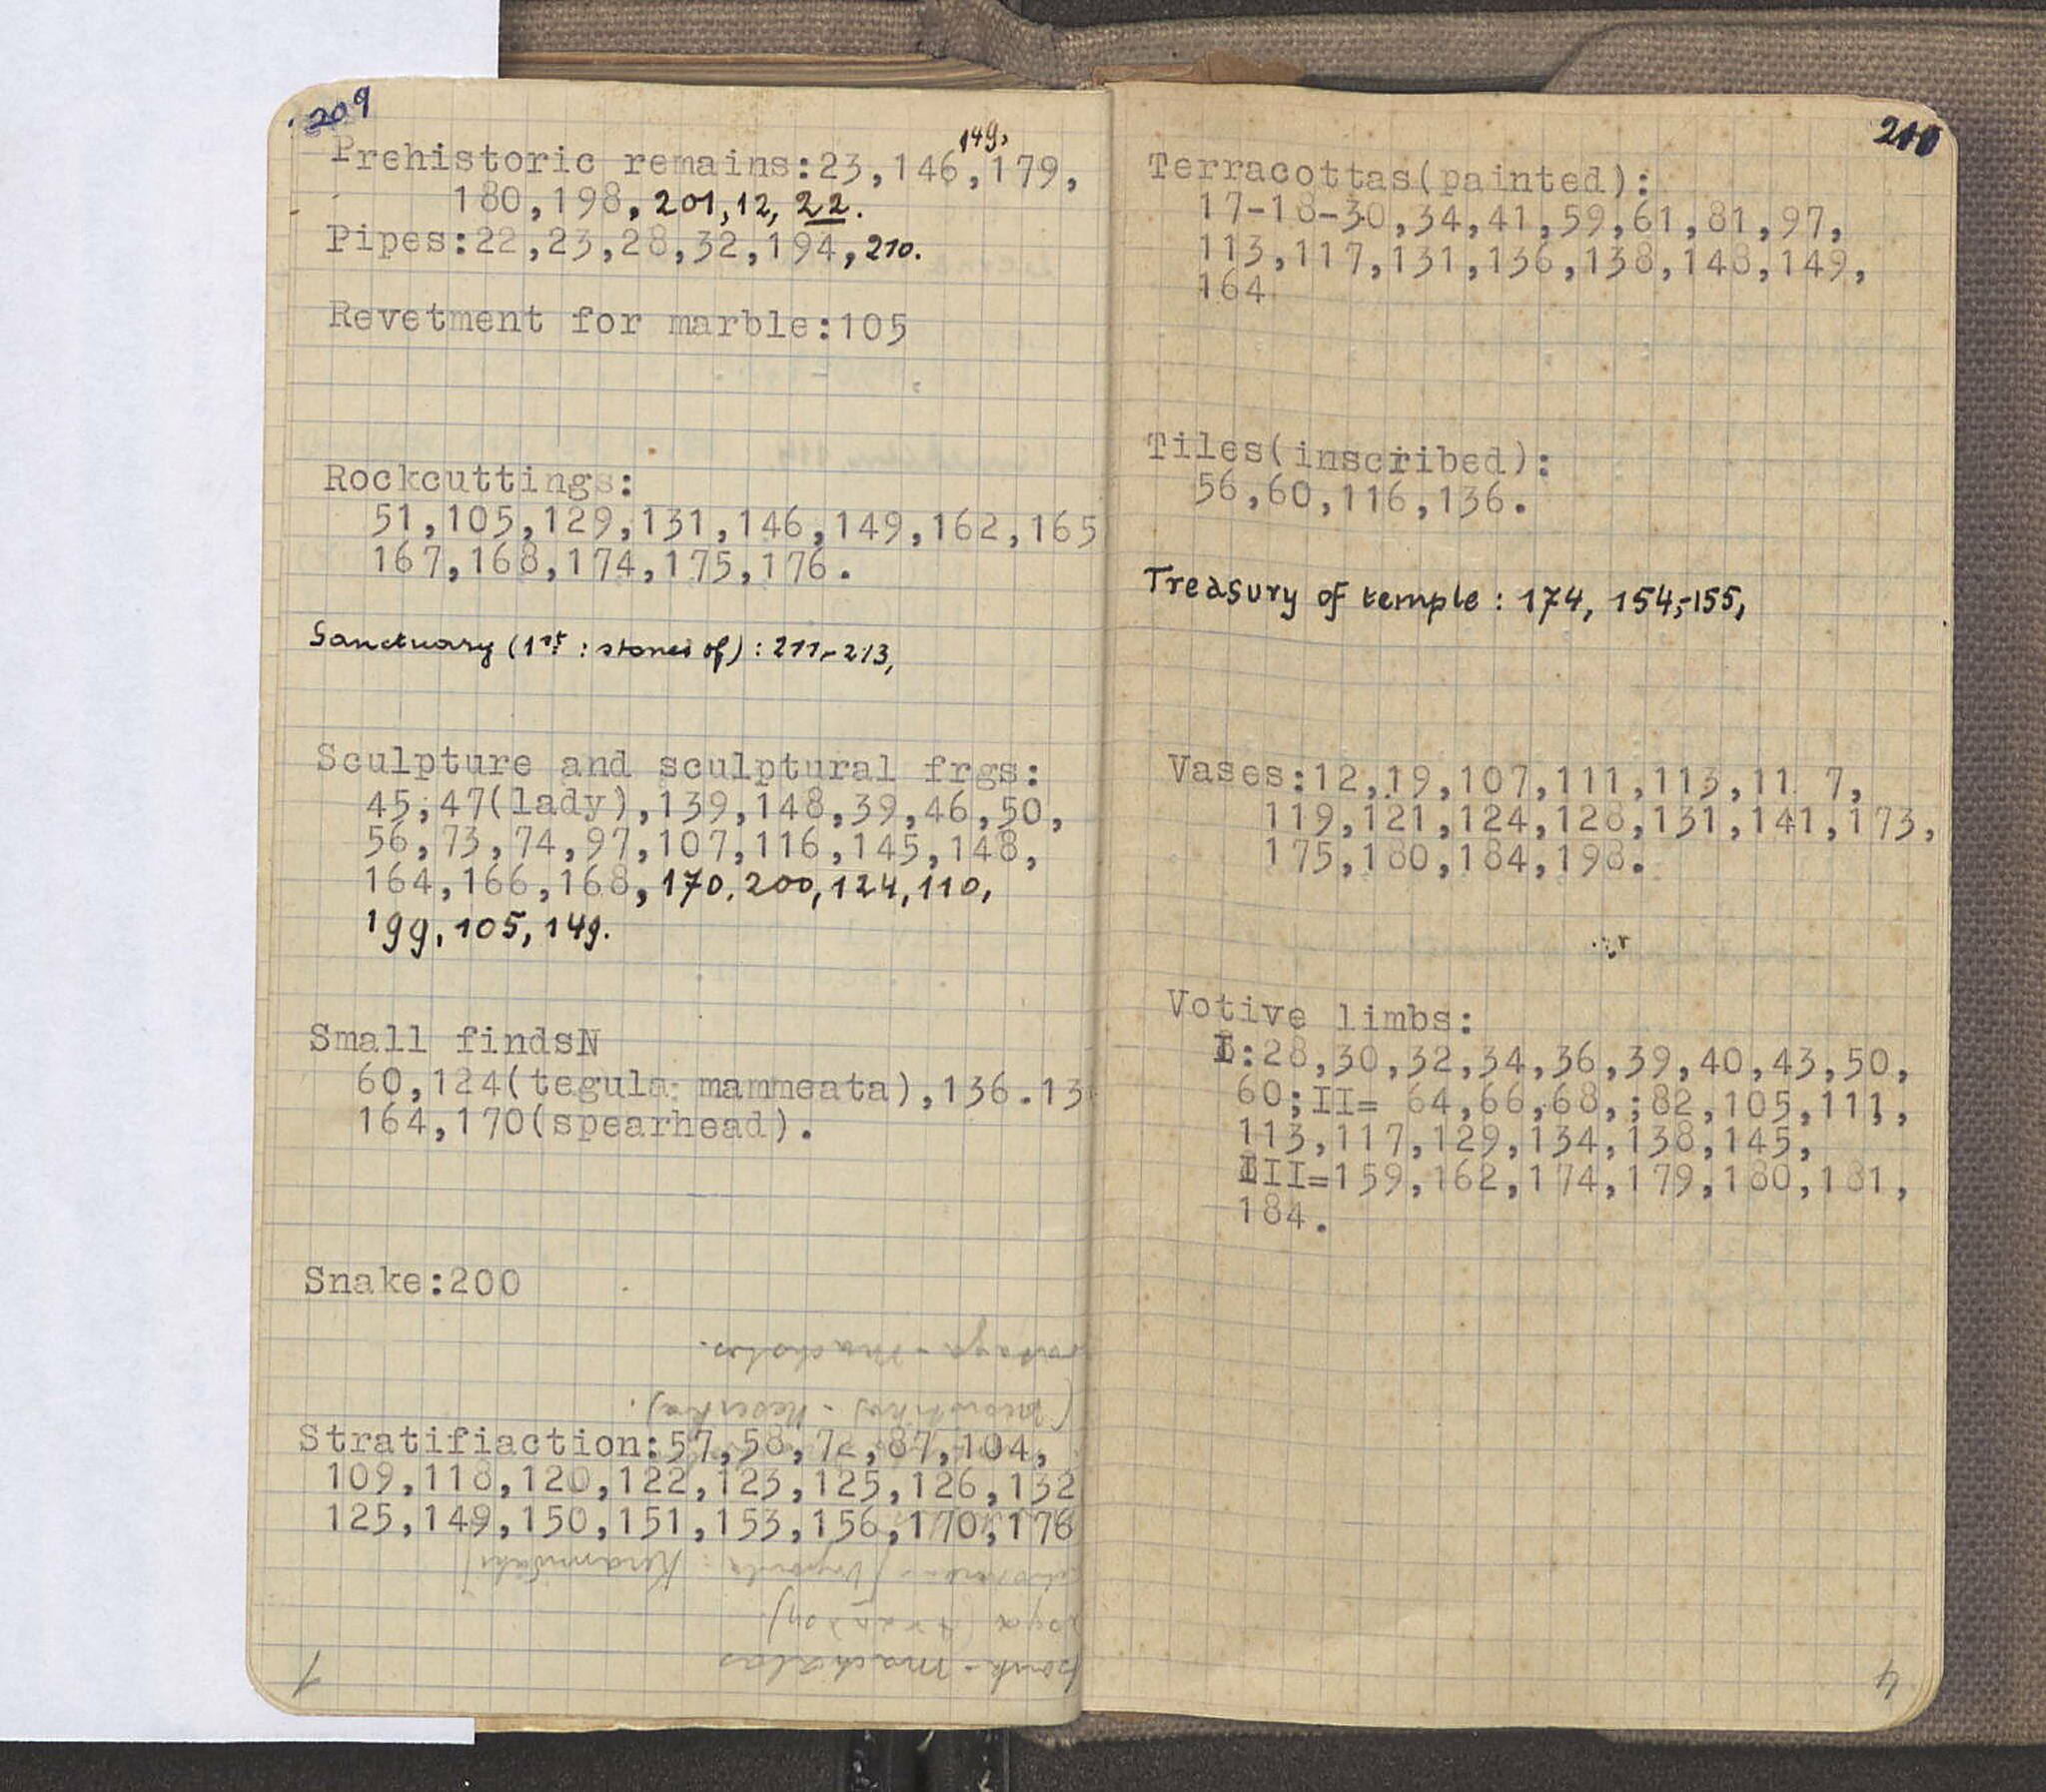 209
149,
Prehistoric remains:23,146,179,
180,198,201,12,22.
Pipes:22,23,28,32,194,210.
Revetment for marble:105
Rockcuttings:
51,105,129,131,146,149,162,165
167,168,174,175,176.
Sanctuary (1st : stones of) : 211-213,
Sculpture and sculptural frgs:
45,47(lady),139,148,39,46,50,
56,73,74,97,107,116,145,148,
164,166,168,170,200,124,110,
199,105,149.
Small findsN
60,124(tegula mammeata),136.13
164,170(spearhead).
Snake:200
Stratifiaction:57,58,72,87,104,
109,118,120,122,123,125,126,132
125,149,150,151,153,156,170,176
machalas
1
210
Terracottas(painted):
17-18-30,34,41,59,61,81,97,
113,117,131,136,138,148,149,
164
Tiles(inscribed):
56,60,116,136.
Treasury of temple : 174, 154,-155,
Vases:12,19,107,111,113,11 7,
119,121,124,128,131,141,173,
175,180,184,198.
Votive limbs:
I:28,30,32,34,36,39,40,43,50,
60;II= 64,66,68,;82,105,111,
113,117,129,134,138,145,
III=159,162,174,179,180,181,
184.
4